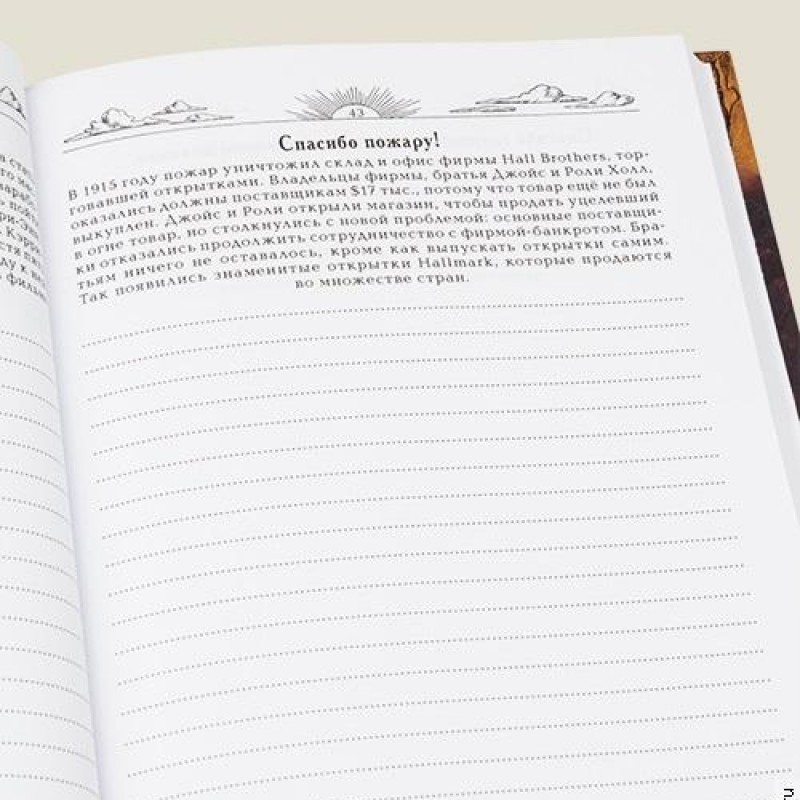 43
Спасибо пожару!
В 1915 году пожар уничтожил склад и офис фирмы Hall Brothers, тор-
говавшей открытками. Владельцы фирмы, братья Джойс и Роли Холл,
оказались должны поставщикам $17 тыс., потому что товар ещё не был
выкуплен. Джойс и Роли открыли магазин, чтобы продать уцелевший
в огне товар, но столкнулись с новой проблемой: основные поставщи-
ки отказались продолжить сотрудничество с фирмой-банкротом. Бра-
тьям ничего не оставалось, кроме как выпускать открытки самим.
Так появились знаменитые открытки Hallmark, которые продаются
во множестве стран.